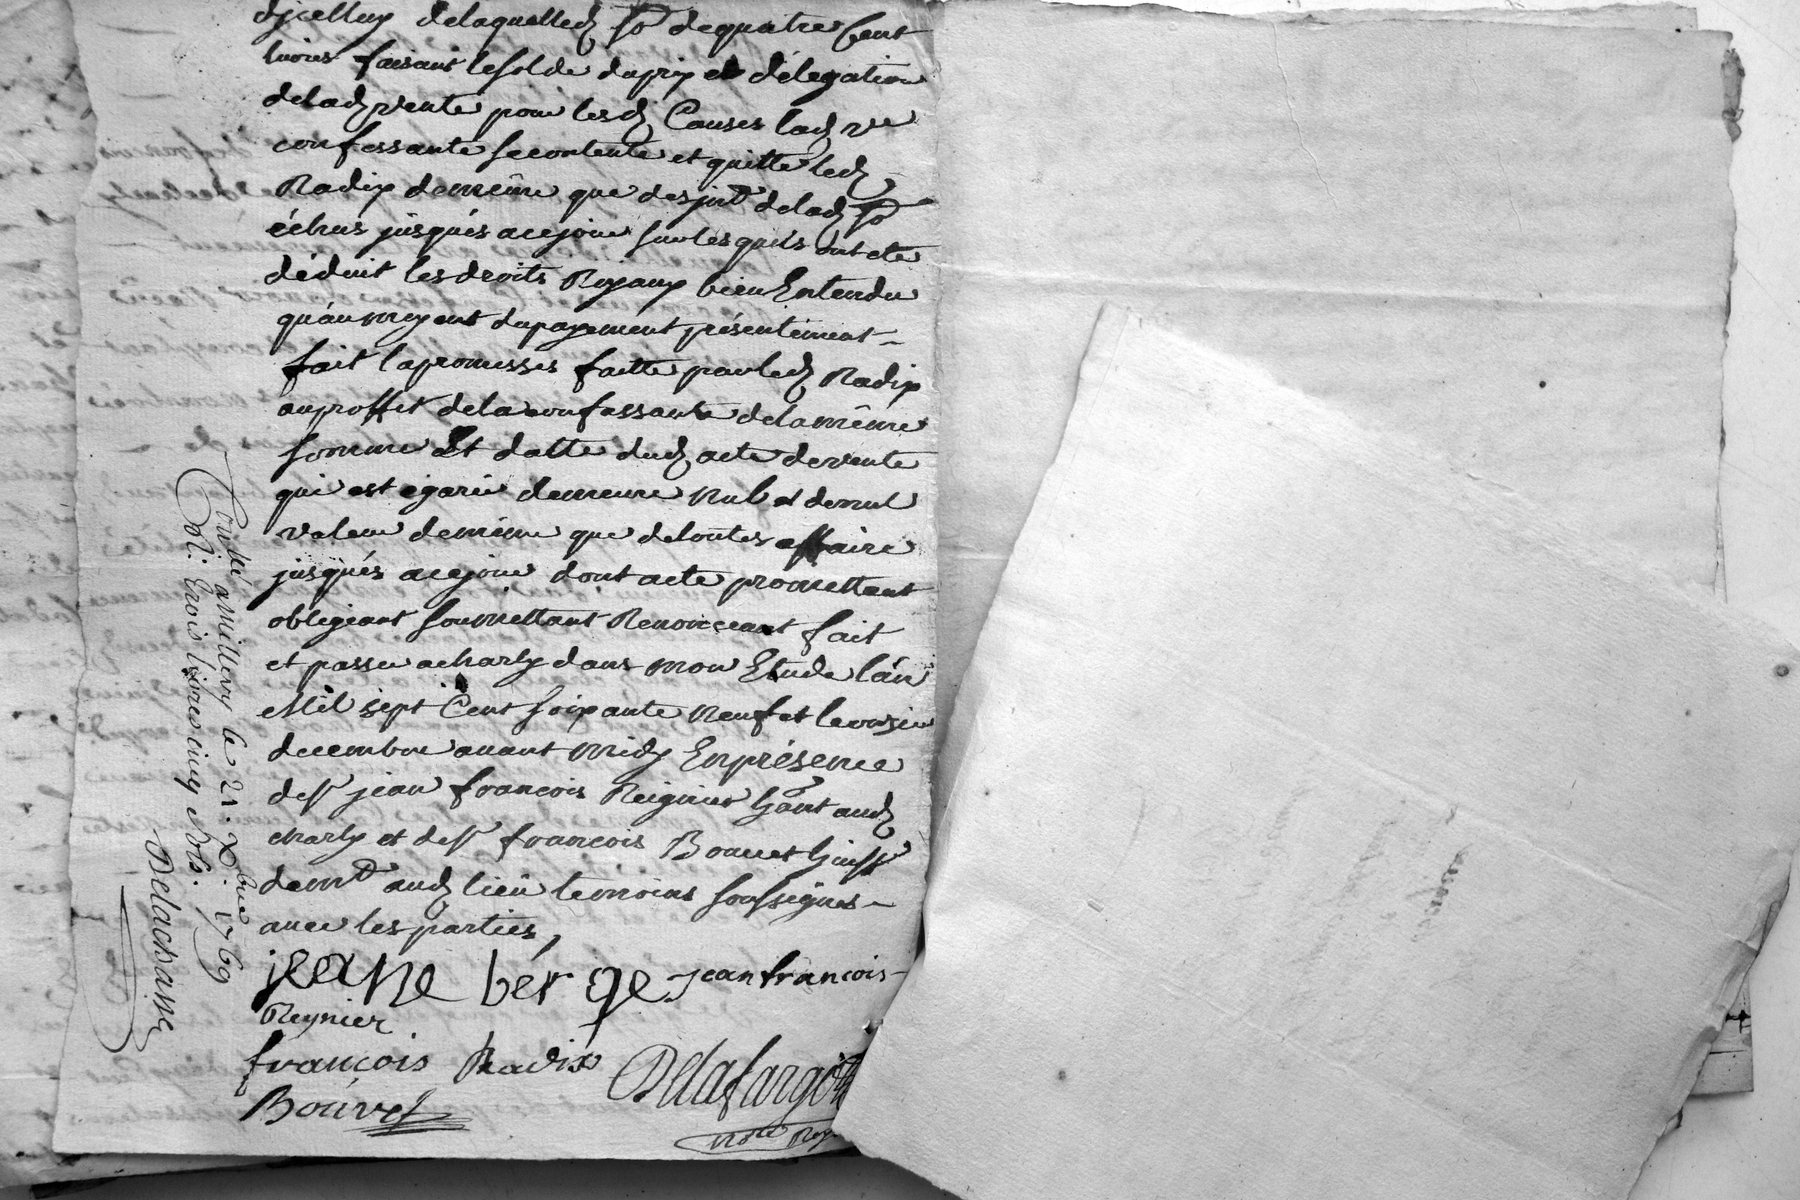 dicelluy delaquelled. so. dequatre Cent
livres faisant lesolde duprix et délegation
delad. vente pour lesd. Causes lad. ve
confessante secontente et quitte led.
Radix demême que desjnt. delad. so.
échus jusqués acejour surlesquels ont eté
déduit les droits Royaux bien Entendu
qu'aumoyent dupayement présentement
fait lapromesses faitte parled. Radix
auproffit dela confessante delamême
somme Et datte dud. acte devente
qui est égarée demeure Nul et denul
valeur demême que detoutes affaire
jusqués acejour dont acte promettant
obligeant soumettant Renonceant fait
et passé acharly dans mon Etude l'an
Mil sept Cent soixante Neuf et leonzie
decembre avant midy Enprésence
de sr jean françois Reignier hant aud.
charly et de sr françois Bouvet huissr
demt aud. lieu temoins soussignés
avec les parties,
jeane bérge jean francois
Reynier
francois Radix
Delafargue
Bouvet
notre Roy
Contlé amillery le 21. Xbre 1769
R: trois livres cinq sols.
Delachasse